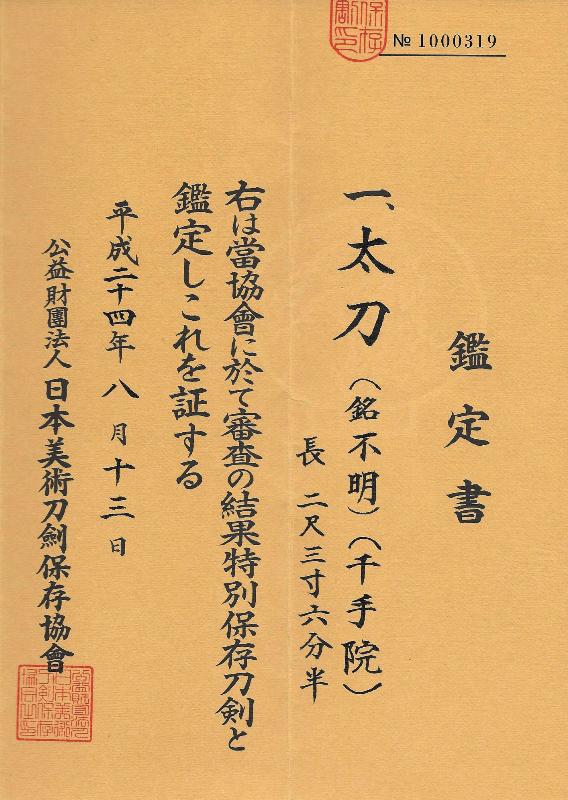 № 1000319
鑑定書
一、太刀(銘不明)(千手院)
長 二尺三寸六分半
右は當協會に於て審査の結果特別保存刀剣と
鑑定しこれを証する
平成二十四年八月十三日
公益財團法人 日本美術刀劍保存協會